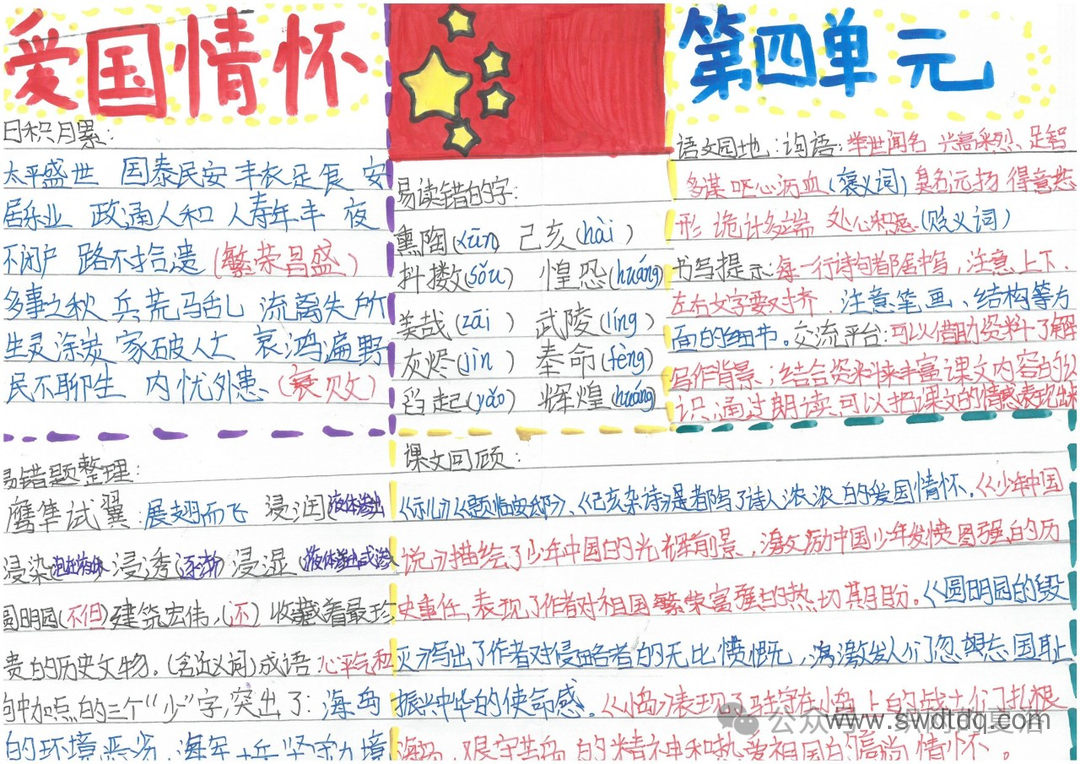 爱国情怀
第四单元
日积月累:
太平盛世 国泰民安 丰衣足食 安
居乐业 政通人和 人寿年丰 夜
不闭户 路不拾遗 (繁荣昌盛)
多事之秋 兵荒马乱 流离失所
生灵涂炭 家破人亡 哀鸿遍野
民不聊生 内忧外患 (衰败)
易读错的字:
熏陶(xūn) 己亥(hài)
抖擞(sǒu) 惶恐(huáng)
美哉(zāi) 武陵(líng)
灰烬(jìn) 奉命(fèng)
舀起(yǎo) 辉煌(huáng)
语文园地: 词语: 举世闻名 兴高采烈、足智
多谋 呕心沥血(褒义词) 臭名远扬 得意忘
形 诡计多端 处心积虑(贬义词)
书写提示:每一行诗句都居中写,注意上下、
左右文字要对齐,注意笔画、结构等方
面的细节。交流平台:可以借助资料了解
写作背景;结合资料来丰富课文内容的认
识,通过朗读可以把课文的情感表现出来
易错题整理:
鹰隼试翼:展翅而飞 浸润
浸染 浸透 逐渐 浸湿
圆明园(不但)建筑宏伟,(还)收藏着最珍
贵的历史文物。(含近义词)成语 心平气和
句中加点的三个“少”字,突出了: 海岛
的环境恶劣,海军士兵坚守边境
课文回顾:
《示儿》《题临安邸》、《己亥杂诗》是者陷了诗人浓浓的爱国情怀。《少年中国
说》描绘了少年中国的光辉前景,激励中国少年发愤图强的历
史重任,表现了作者对祖国繁荣富强的热切期盼。《圆明园的毁
灭》写出了作者对侵略者的无比愤慨,激发人们忘国耻
振兴中华的使命感。《小岛》表现了驻守在小岛上的战士们扎根
海岛,艰守岛的精神和热爱祖国的情怀。
公众号
www.swdtdq.com